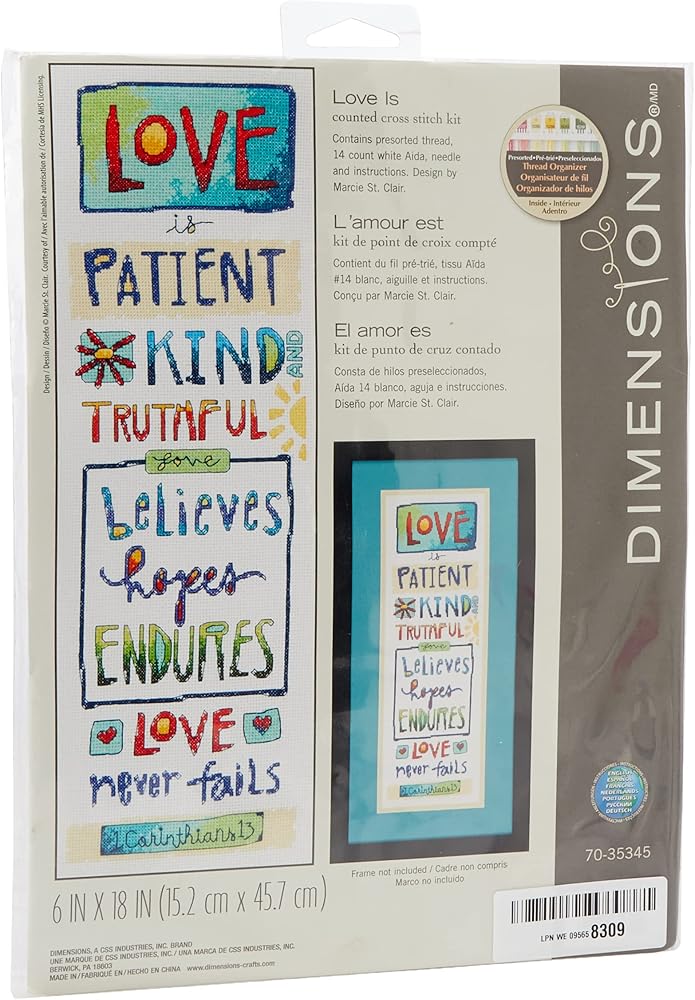 Design / Dessin / Diseño © Marcie St. Clair. Courtesy of / Avec l'aimable autorisation de / Cortesía de MHS Licensing.
LOVE
is
PATIENT
KIND AND
TRUTHFUL
Love
believes
hopes
ENDURES
LOVE
never fails
1 Corinthians 13
6 IN X 18 IN (15.2 cm x 45.7 cm)
DIMENSIONS, A CSS INDUSTRIES, INC. BRAND
UNE MARQUE DE CSS INDUSTRIES, INC. / UNA MARCA DE CSS INDUSTRIES, INC.
BERWICK, PA 18603
MADE IN/FABRIQUÉ EN/HECHO EN CHINA www.dimensions-crafts.com
Love Is
counted cross stitch kit
Contains presorted thread,
14 count white Aida, needle
and instructions. Design by
Marcie St. Clair.
L'amour est
kit de point de croix compté
Contient du fil pré-trié, tissu Aïda
#14 blanc, aiguille et instructions.
Conçu par Marcie St. Clair.
El amor es
kit de punto de cruz contado
Consta de hilos preseleccionados,
Aída 14 blanco, aguja e instrucciones.
Diseño por Marcie St. Clair.
Presorted•Pré-trié•Preseleccionados
Thread Organizer
Organisateur de fil
Organizador de hilos
Inside • Intérieur
Adentro
LOVE
is
PATIENT
KIND AND
TRUTHFUL
Love
believes
hopes
ENDURES
LOVE
never fails
1 Corinthians 13
Frame not included / Cadre non compris
Marco no incluido
DIMENSIONS®/MD
ENGLISH
ESPAÑOL
FRANÇAIS
NEDERLANDS
PORTUGUÊS
РУССКИЙ
DEUTSCH
70-35345
LPN WE 09565 8309